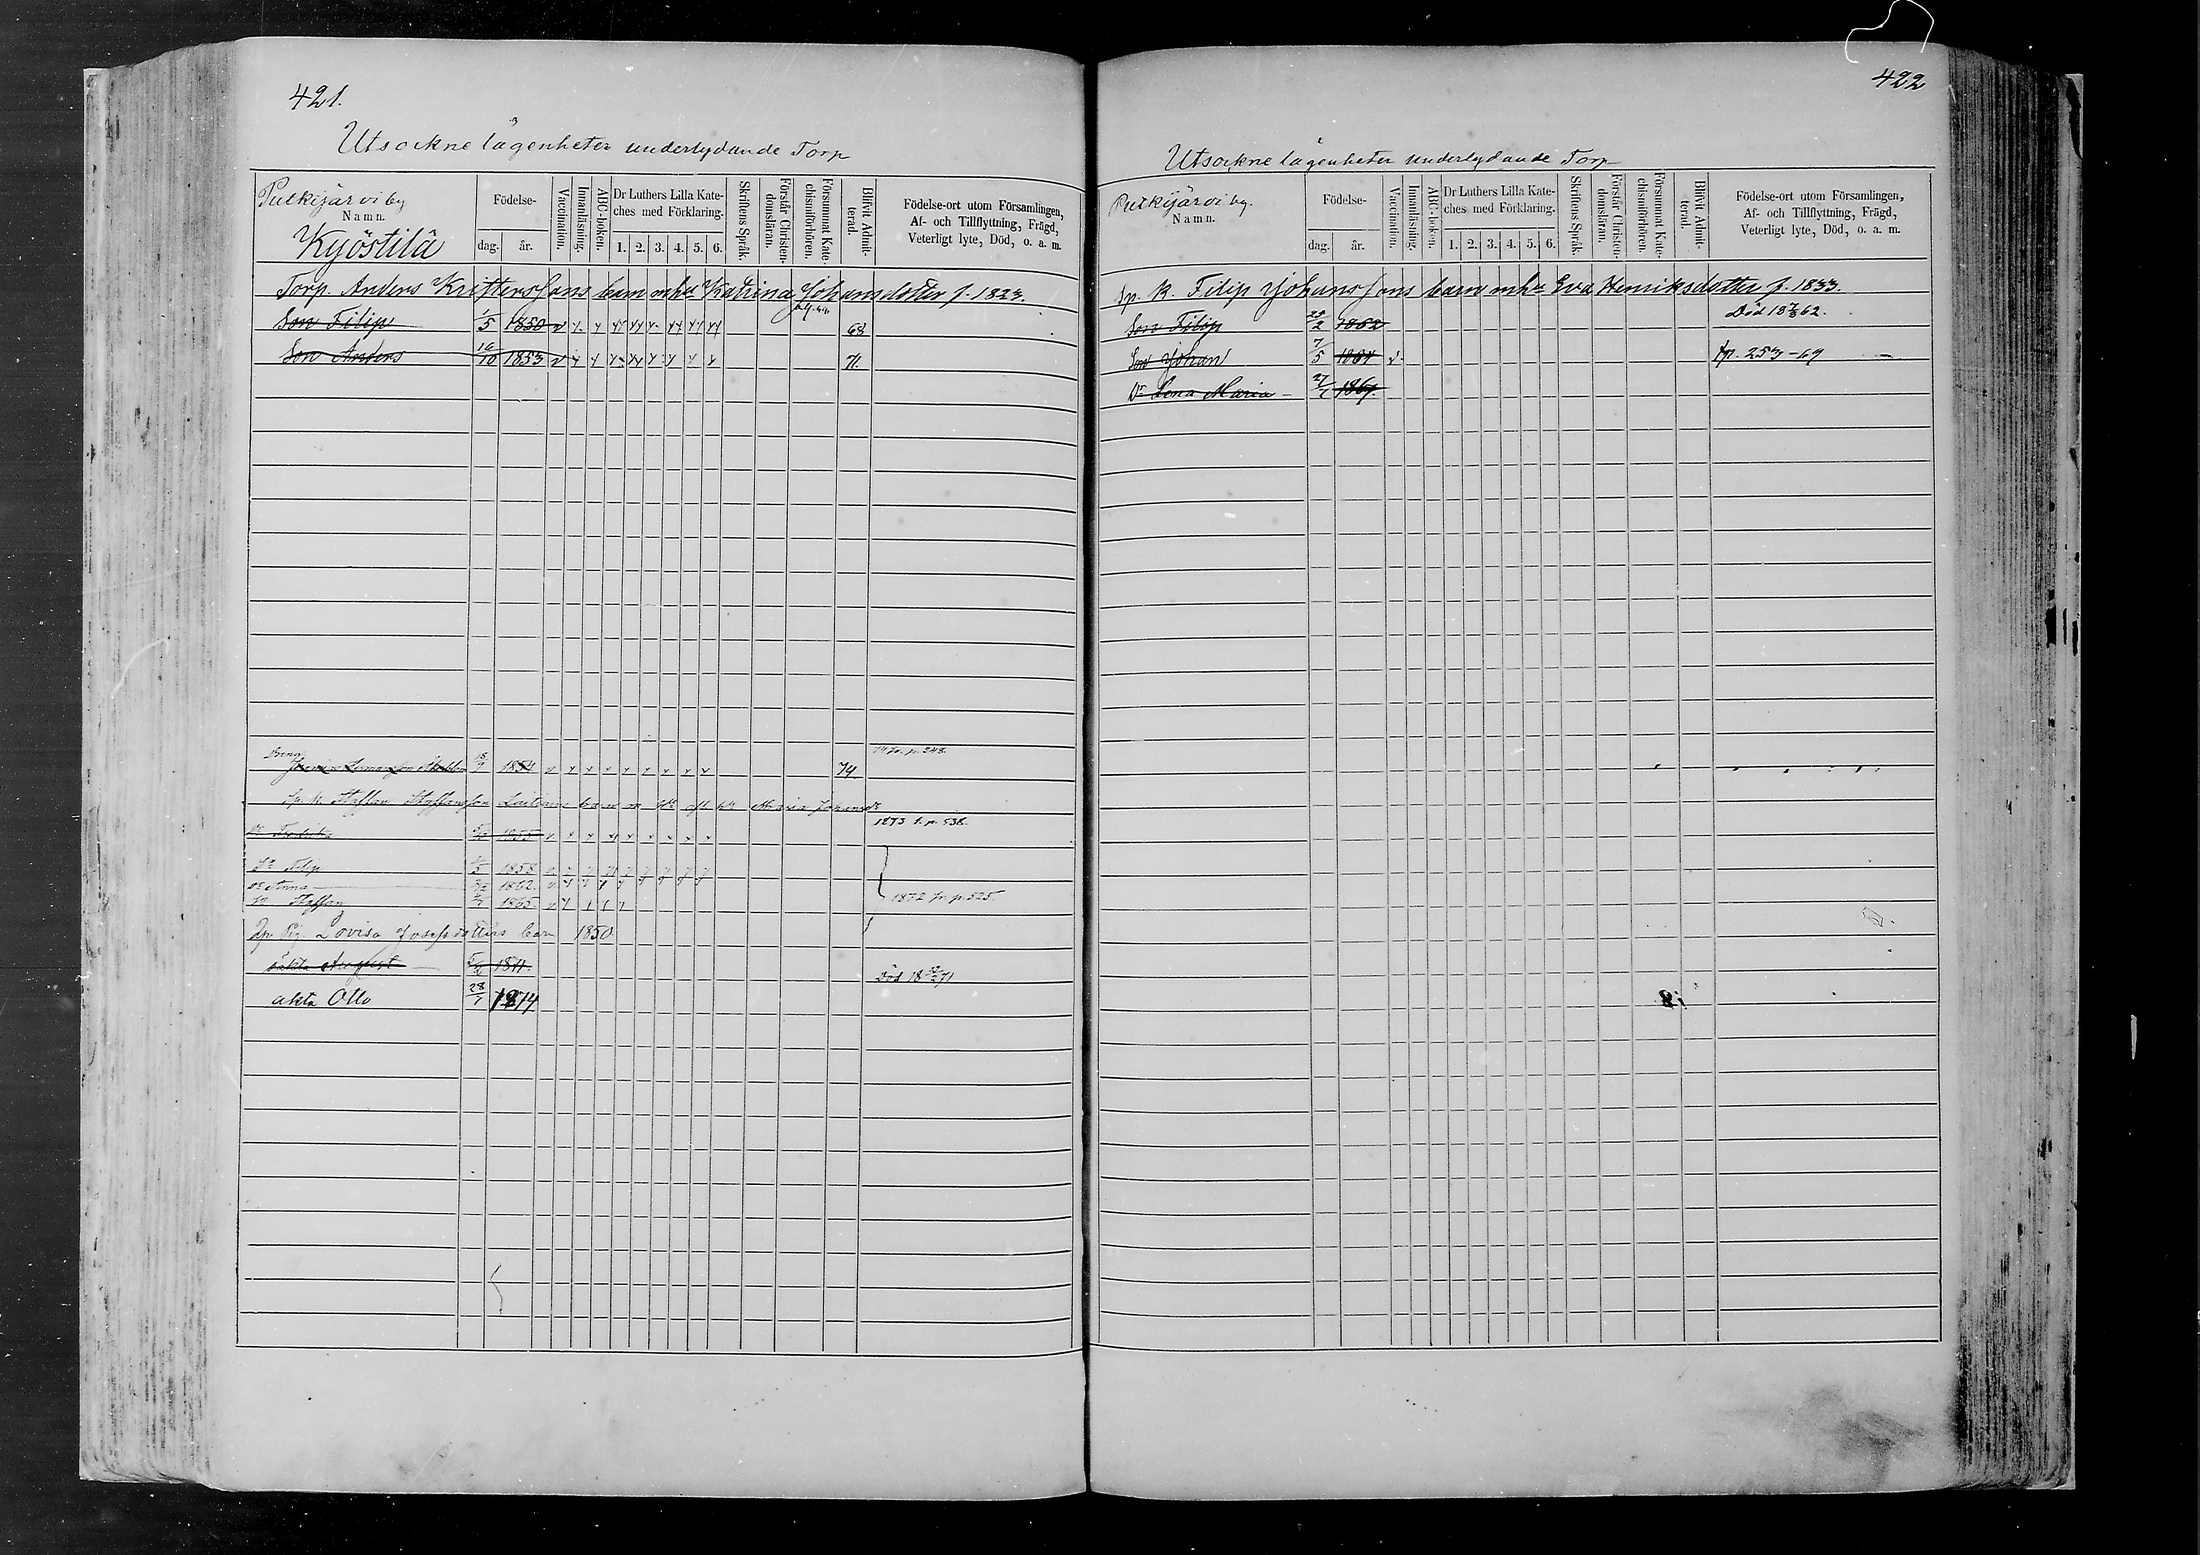 421.
Utsockne lägenheter underlydande Torp
Putkijärvi by
Namn.
Kyöstilä
Födelse-
dag.
år.
Vaccination.
Innanläsning.
ABC-boken.
Dr Luthers Lilla Kate-
ches med Förklaring.
1. 2. 3. 4. 5. 6.
Skriftens Språk.
Förstår Christen-
domsläran.
Försummat Kate-
chismiförhören.
Blifvit Admit-
terad.
Födelse-ort utom Församlingen,
Af- och Tillflyttning, Frägd,
Veterligt lyte, Död, o. a. m.
Torp. Anders Kristerssons barn m h:u Katrina Johansdotter f. 1823.
Son Filip 1/5 1850 68
Son Anders 16/10 1853 71.
15/9 1854 74. p. 248.
Sp. k. Staffan Staffansson barn m Maria
1855 1873 p. 538.
Sn Filip 1858
Dr Anna 1862.
Sn Staffan 1865. 1872 p. 525.
Lovisa Josefsdotters barn 1850
oäkta August 1871. Död 18 71
äkta Otto 28/7 1874
422
Utsockne lägenheter underlydande Torp
Putkijärvi by.
Namn.
Födelse-
dag.
år.
Vaccination.
Innanläsning.
ABC-boken.
Dr Luthers Lilla Kate-
ches med Förklaring.
1. 2. 3. 4. 5. 6.
Skriftens Språk.
Förstår Christen-
domsläran.
Försummat Kate-
chismiförhören.
Blifvit Admit-
terad.
Födelse-ort utom Församlingen,
Af- och Tillflyttning, Frägd,
Veterligt lyte, Död, o. a. m.
Sp. k. Filip Johanssons barn m h:u Eva Henriksdotter f. 1833.
Son Filip 1862 Död 18 62.
Son Johan 7/5 1864 p. 253-69
Dr Lena Maria 1867.